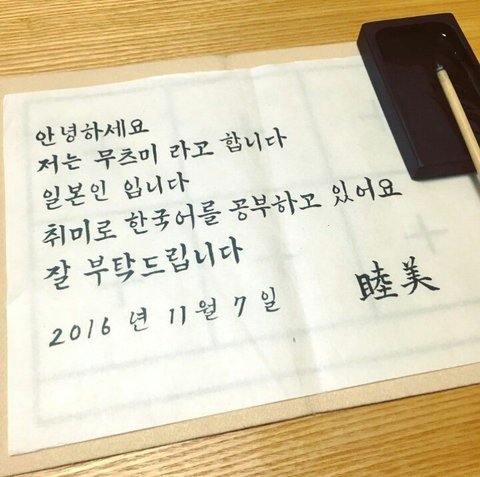 안녕하세요
저는 무츠미 라고 합니다
일본인 입니다
취미로 한국어를 공부하고 있어요
잘 부탁드립니다
2016 년 11월 7 일
睦美